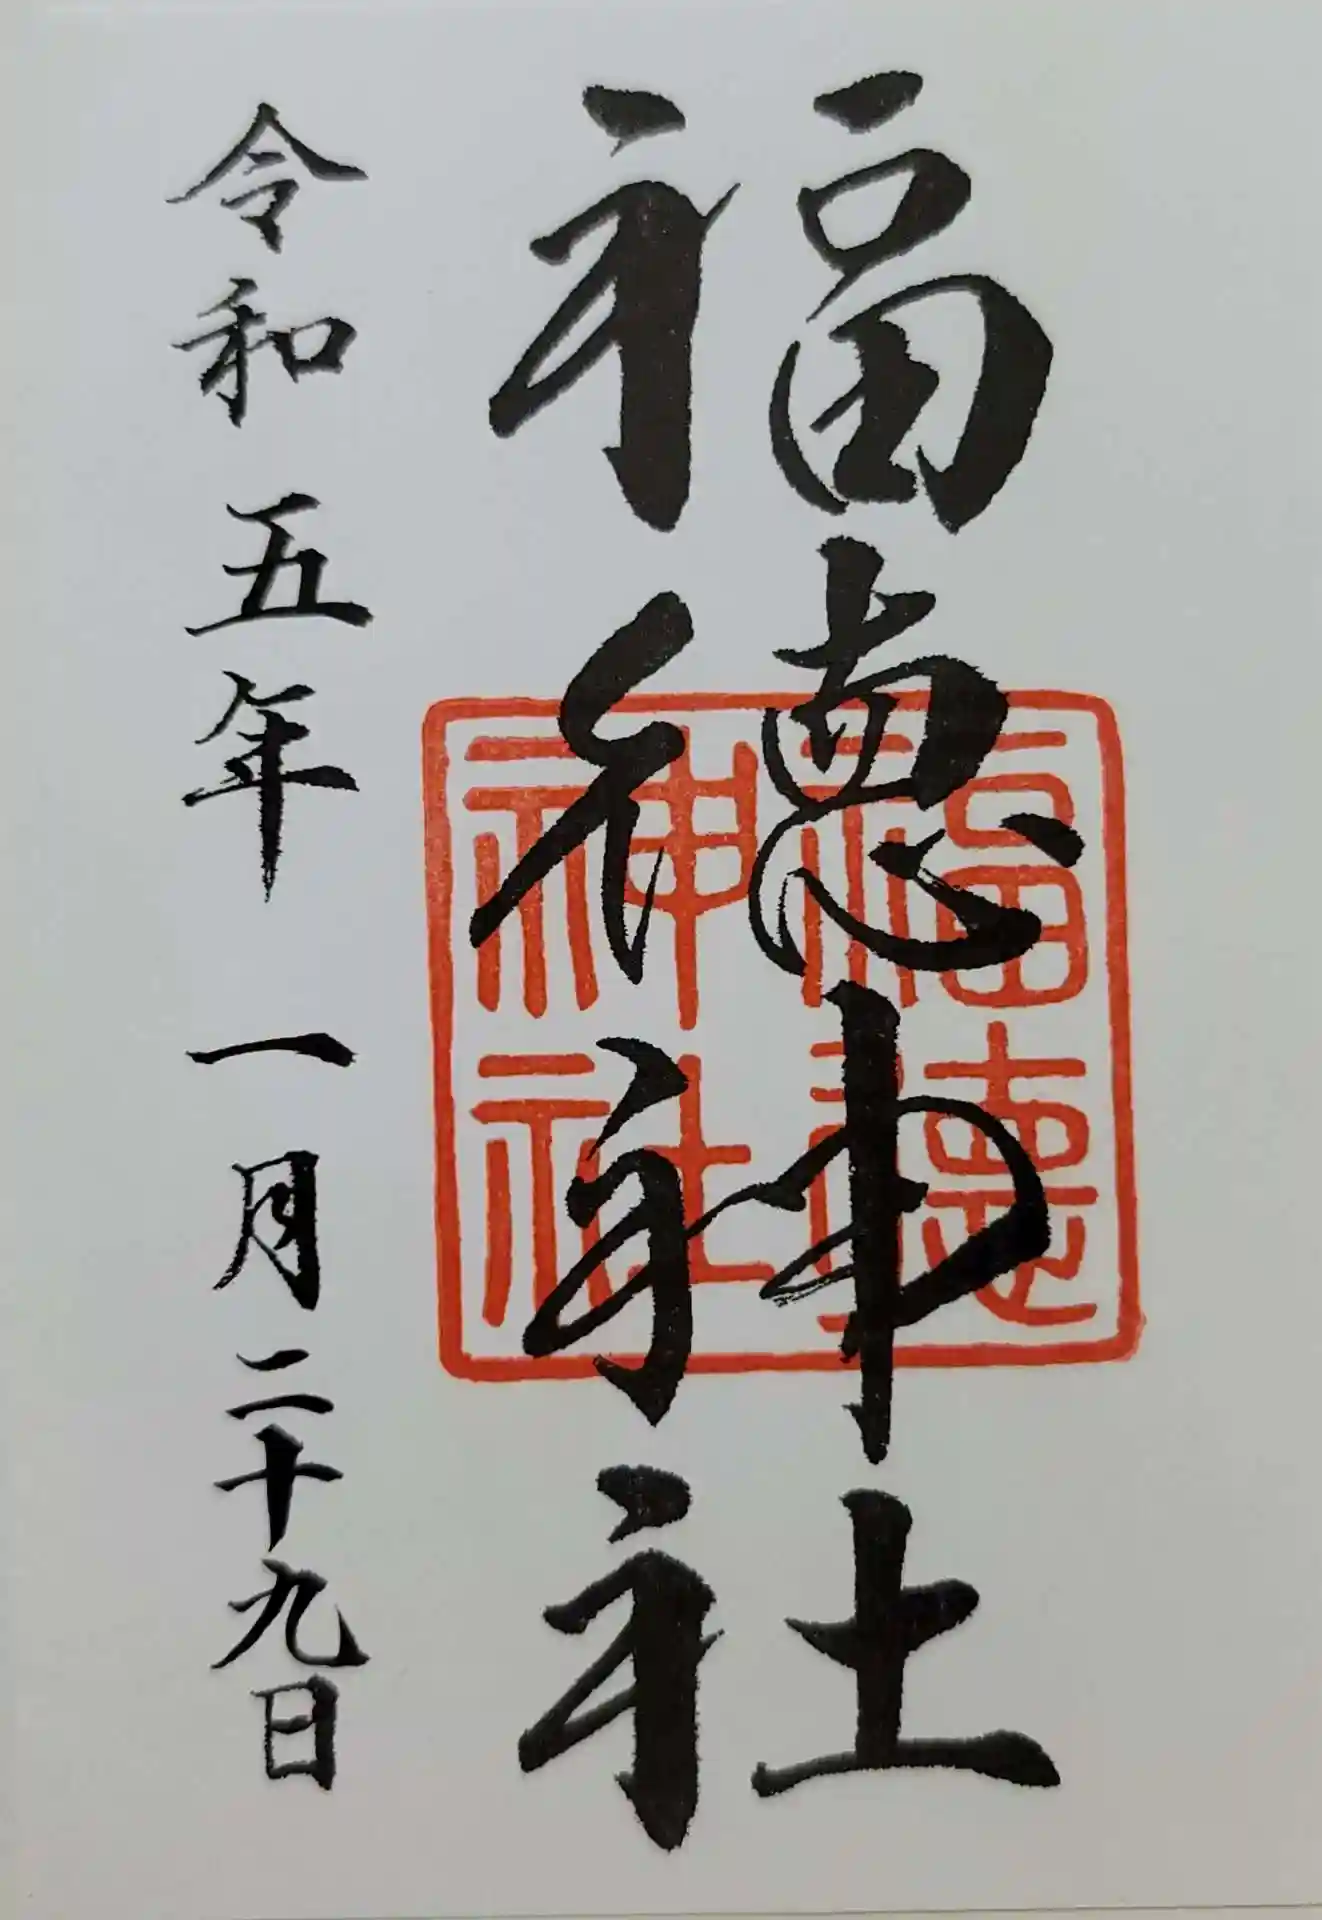 福德神社
福德神社
令和五年一月二十九日